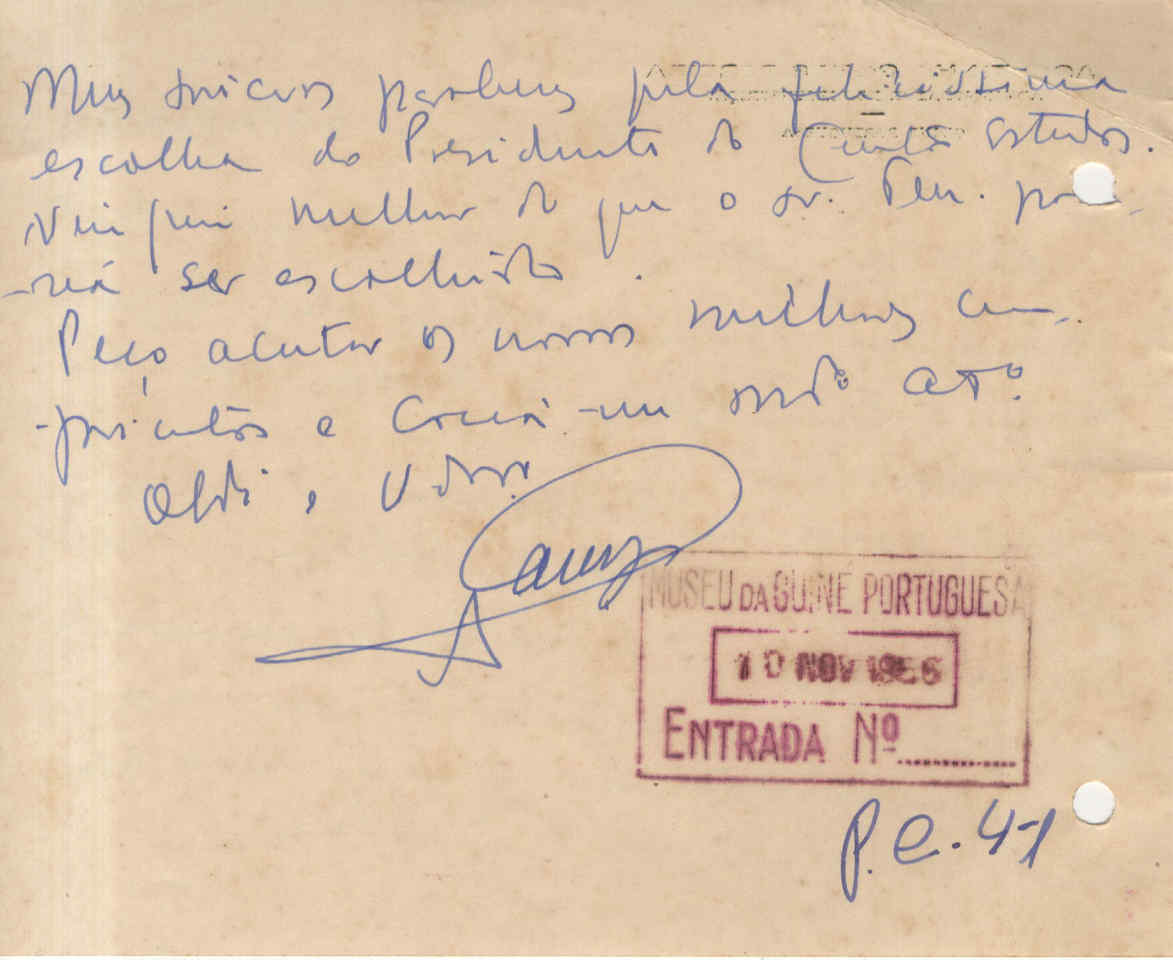 Meus sinceros parabens pela felicissima
escolha do Presidente do Centro Estudos.
Ninguem melhor do que o sr. Ten. pode-
-ria ser escolhido.
Peço aceitar os nossos melhores cum-
-primentos e creia-me mto Atº
MUSEU DA GUINÉ PORTUGUESA
10 NOV 1966
ENTRADA Nº
P.C. 4-1